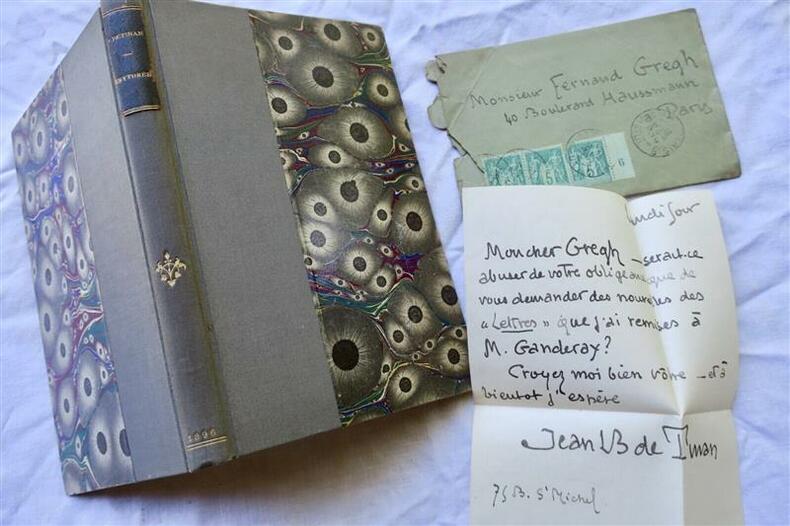 DETINAN
1896
Monsieur Fernand Gregh
40 Boulevard Haussmann
Paris
5 5 5 6
lundi soir
Mon cher Gregh – serait-ce
abuser de votre obligeance que de
vous demander des nouvelles des
« Lettres » que j'ai remises à
M. Ganderax ?
Croyez moi bien vôtre – et à
bientot j'espère
Jean LB de Tinan
75 B. St Michel